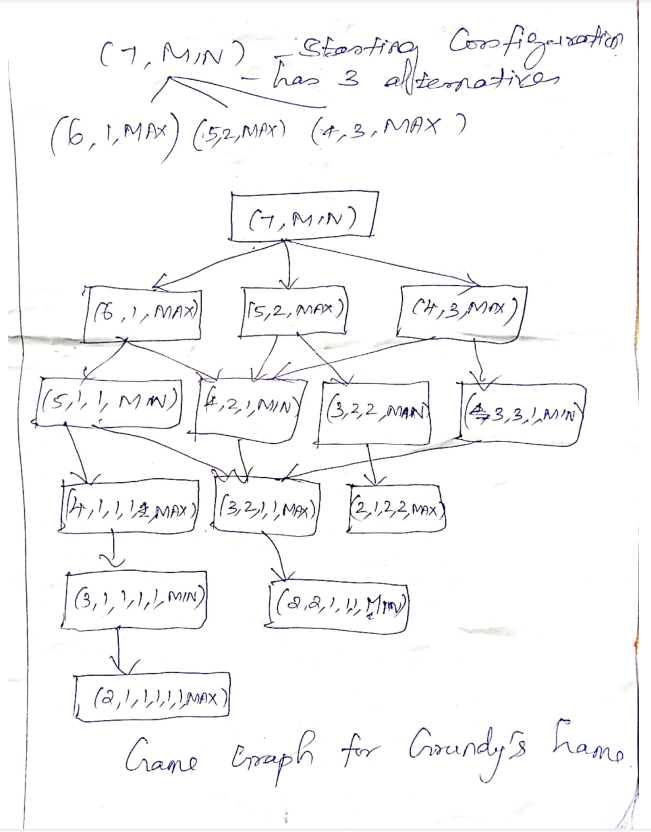 (7, MIN) - Starting Configuration
- has 3 alternatives
(6, 1, MAX) (5,2, MAX) (4, 3, MAX)
(7, MIN)
(6, 1, MAX) (5, 2, MAX) (4, 3, MAX)
(5, 1, 1, MIN) (4, 2, 1, MIN) (3, 2, 2, MIN) (3, 3, 1, MIN)
(4, 1, 1, 1, MAX) (3, 2, 1, 1, MAX) (2, 1, 2, 2, MAX)
(3, 1, 1, 1, 1, MIN) (2, 2, 1, 1, 1, MIN)
(2, 1, 1, 1, 1, 1, MAX)
Game Graph for Grundy's Game.